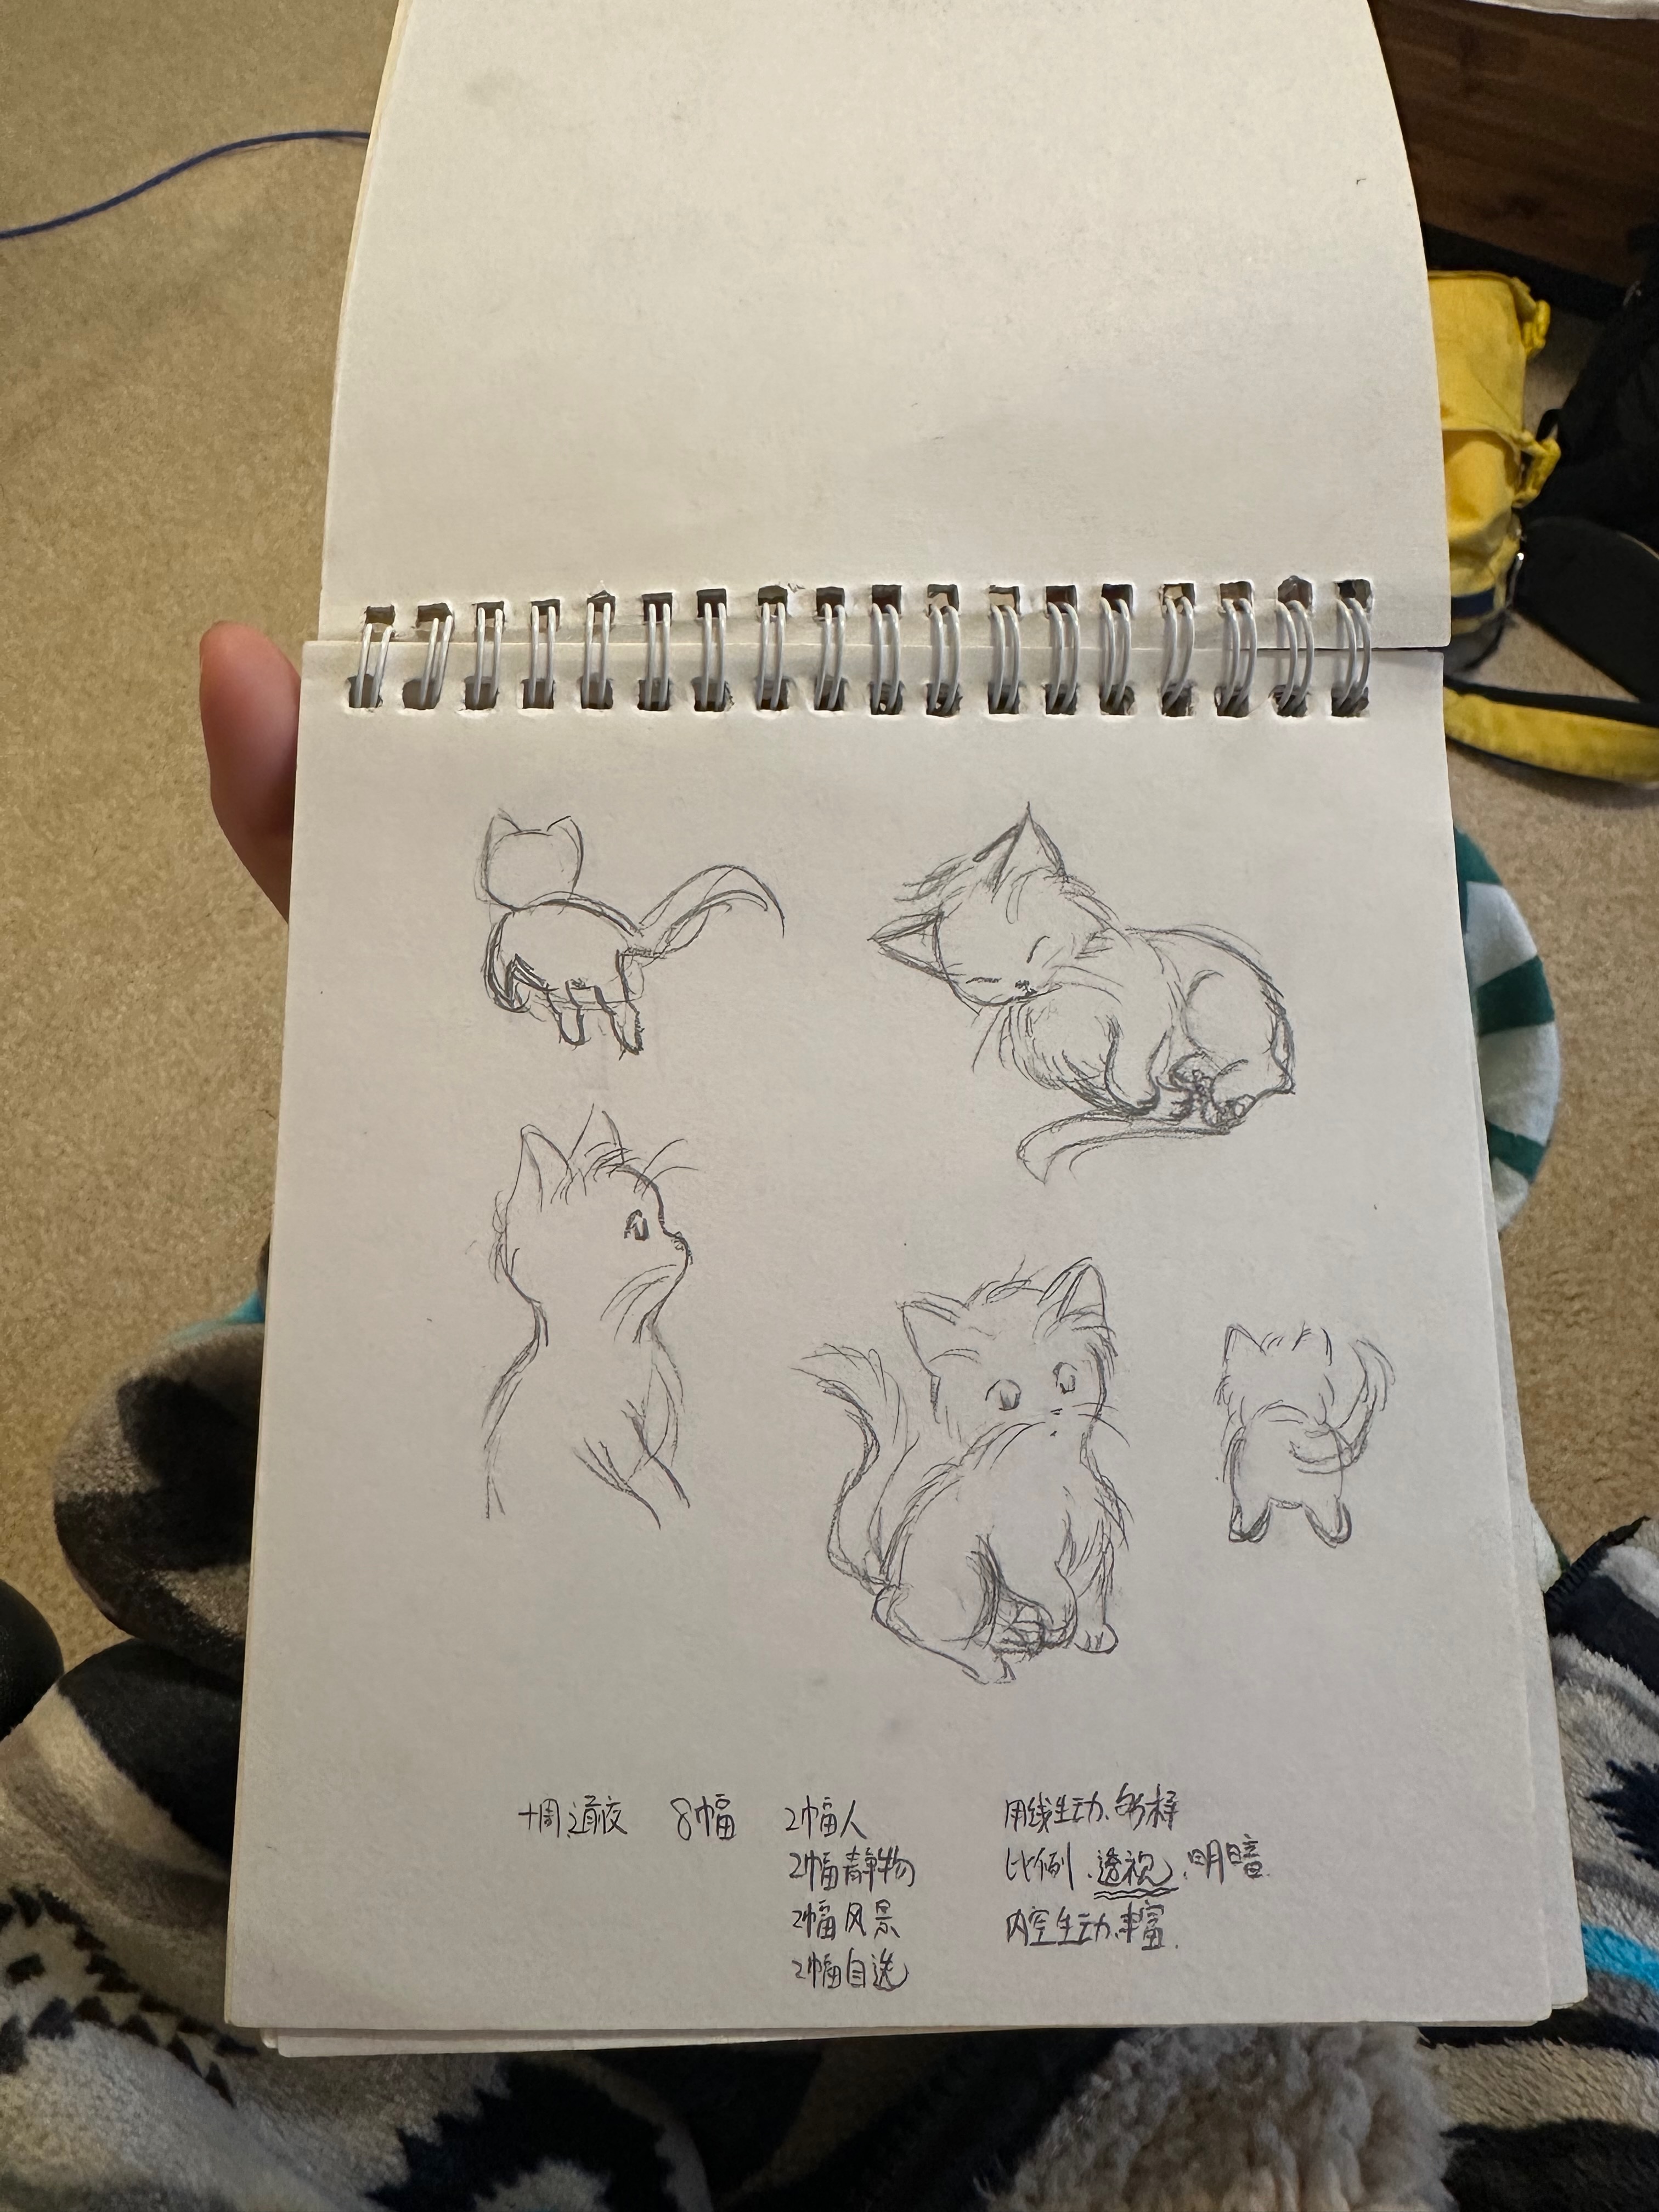 十周 8幅 2幅人
2幅静物
2幅风景
2幅自选
用线生动、多样
比例、透视、明暗
内容生动、丰富.